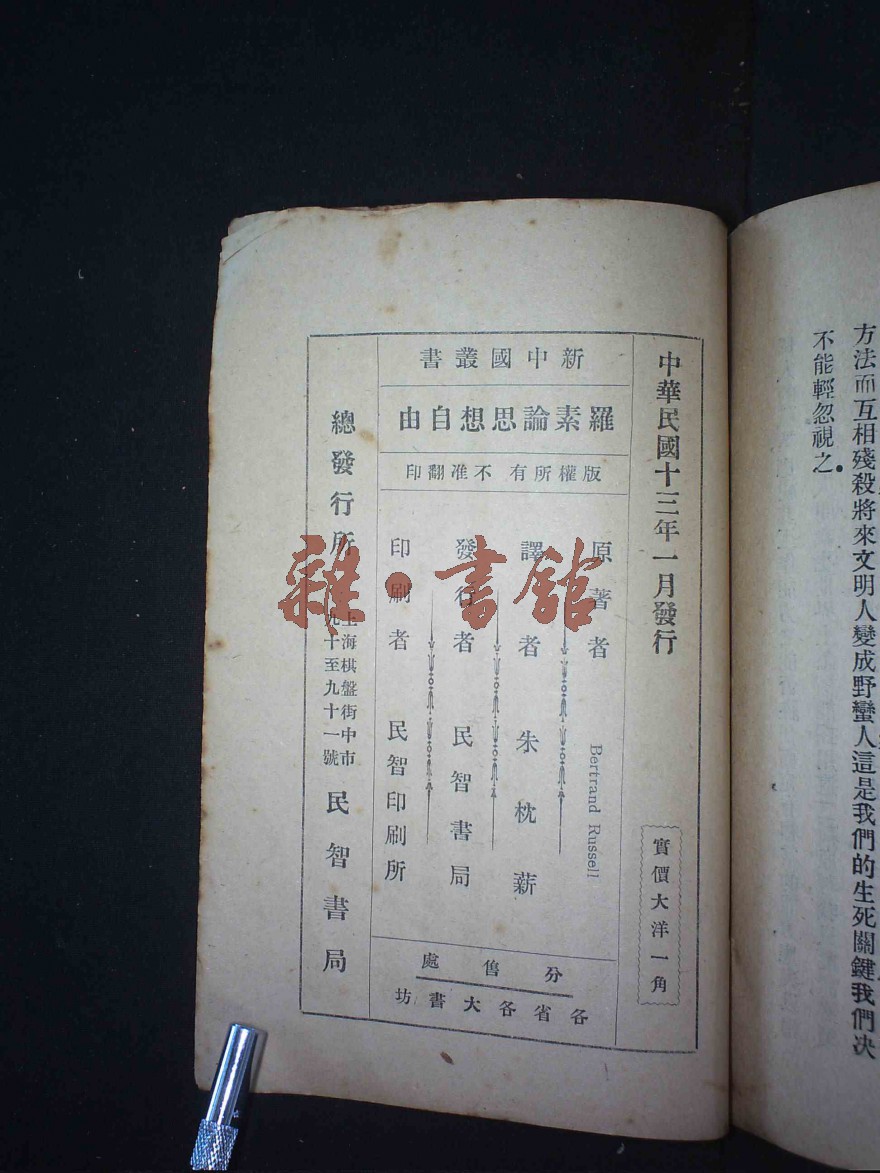 方法而互相殘殺將來文明人變成野蠻人這是我們的生死關鍵我們决
不能輕忽視之.
中華民國十三年一月發行
實價大洋一角
新中國叢書
羅素論思想自由
版權所有 不准翻印
原著者 Bertrand Russell
譯者 朱枕薪
發行者 民智書局
印刷者 民智印刷所
分售處
各省各大書坊
總發行所 上海棋盤街中市
九十至九十一號
民智書局
雜·書舘